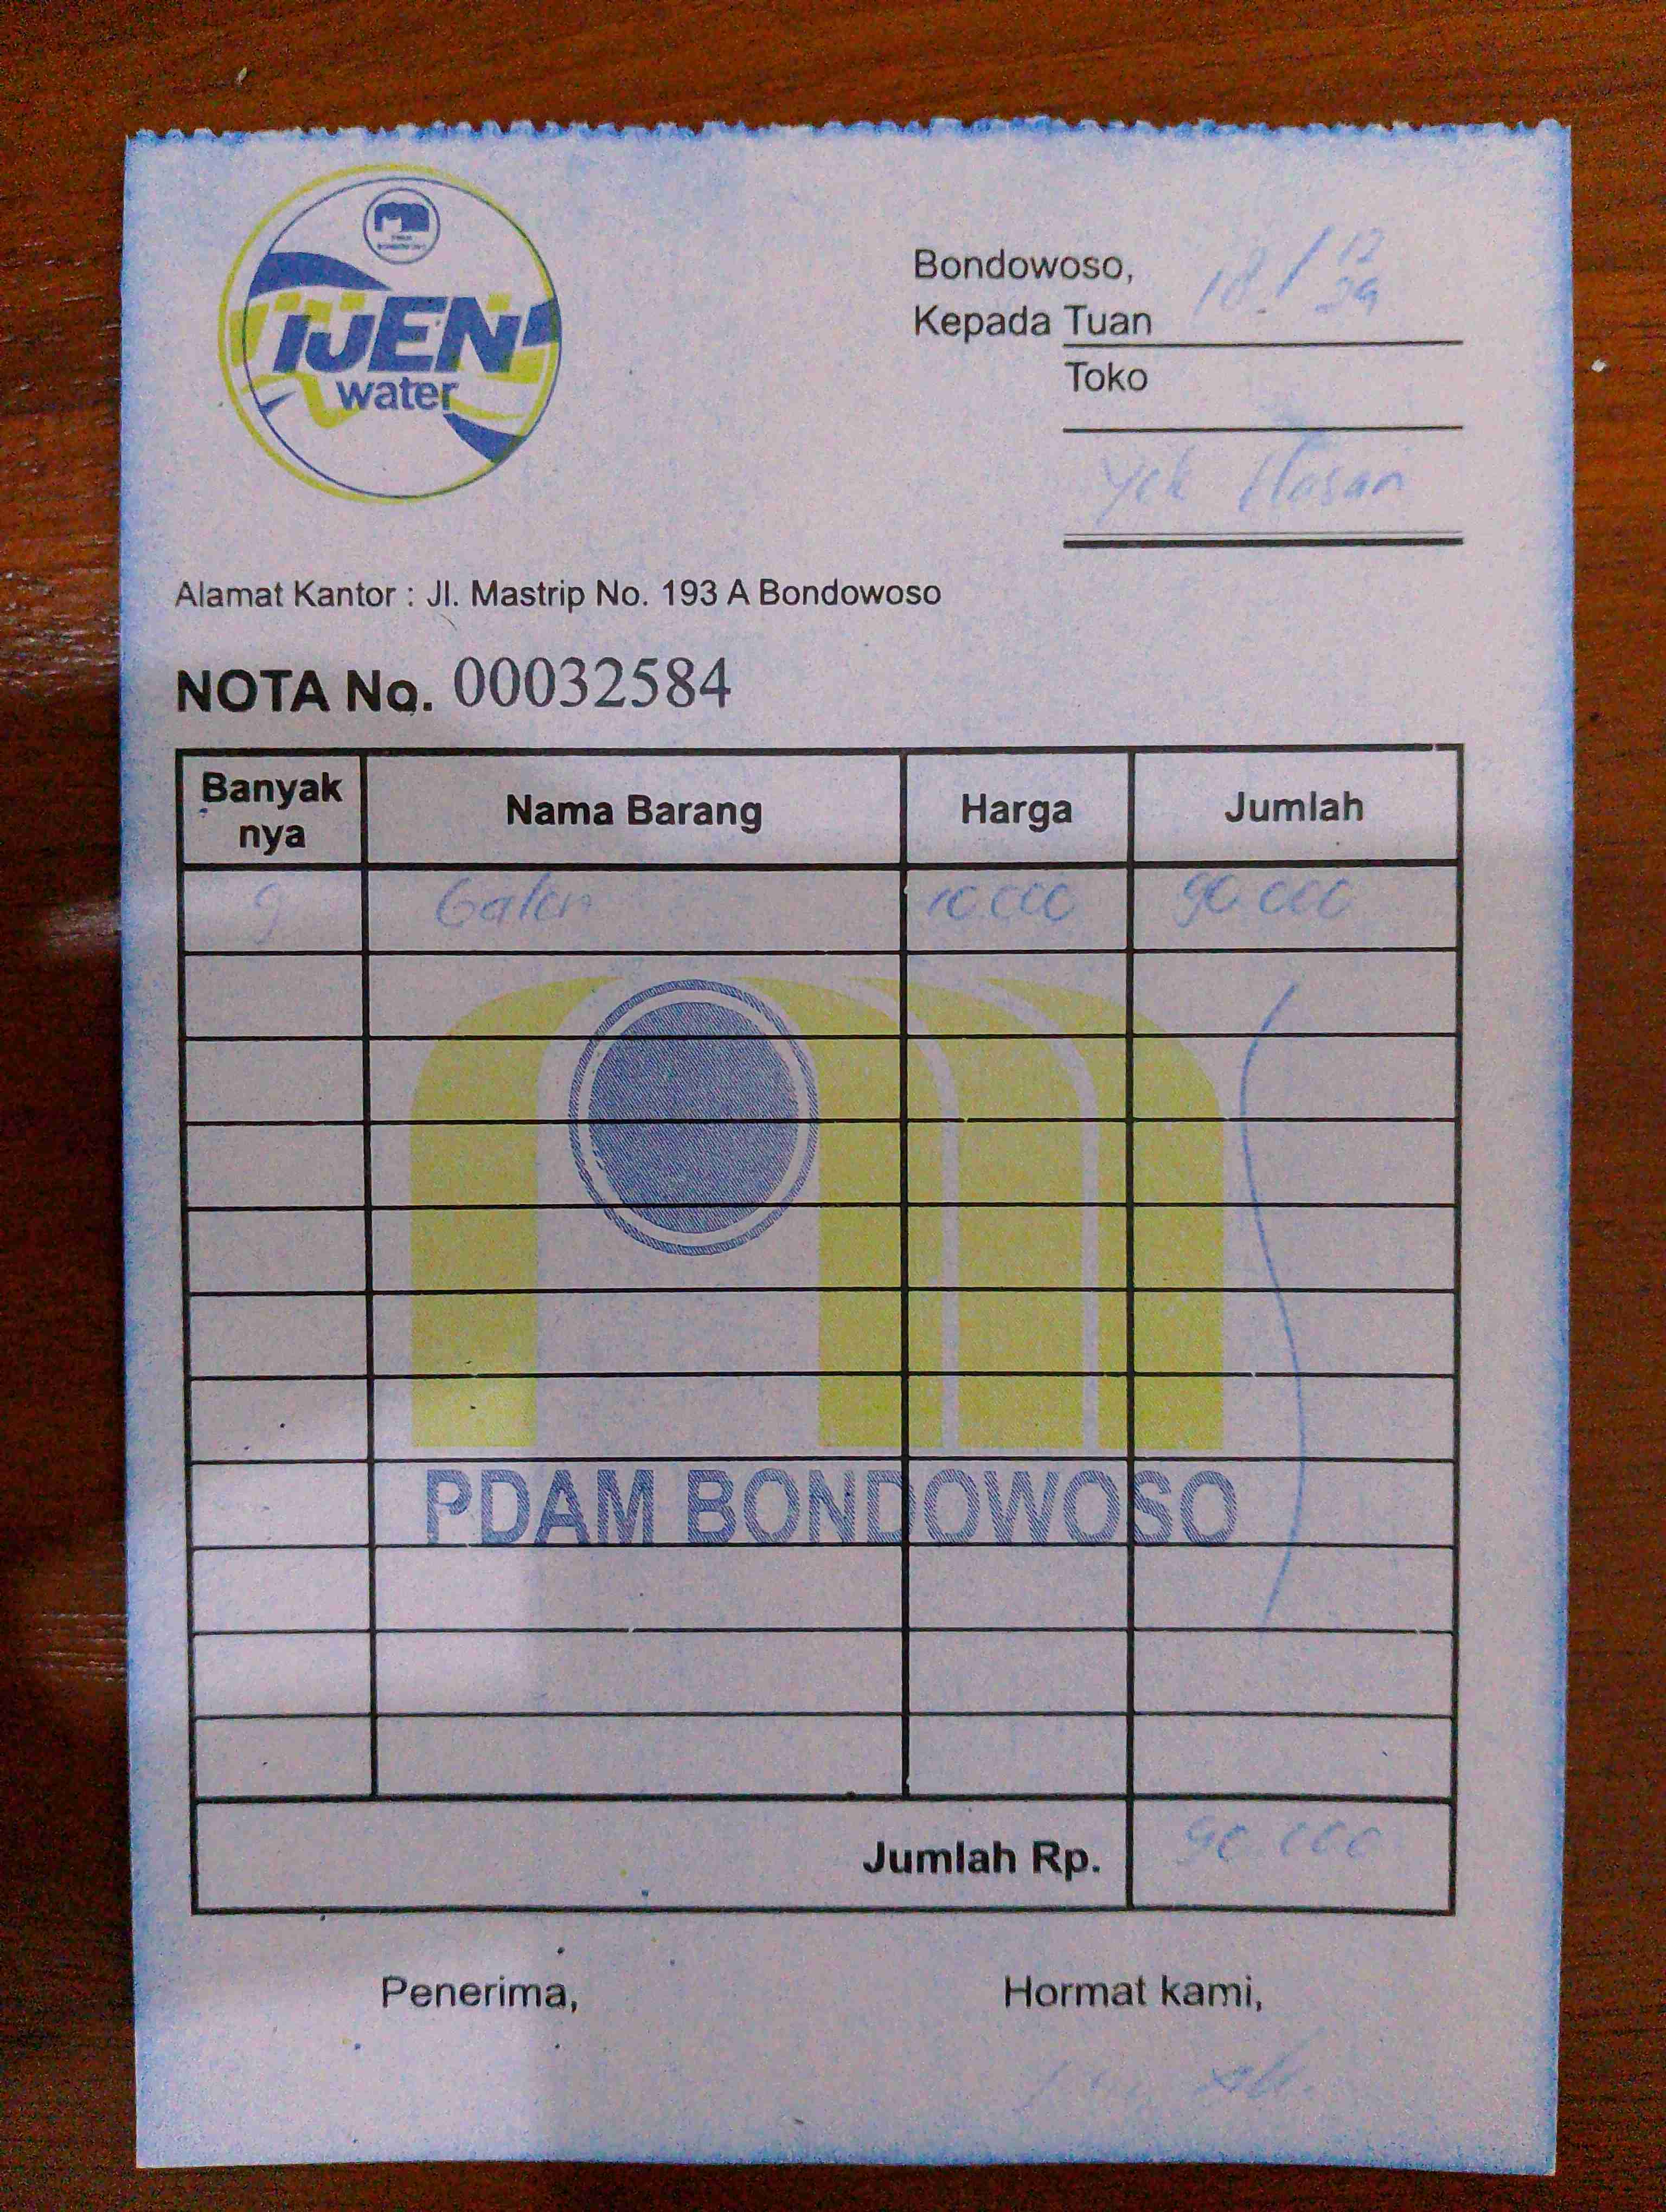 IJEN
water
Bondowoso, 18/12
Kepada Tuan
Toko
Yek Hasan
Alamat Kantor : Jl. Mastrip No. 193 A Bondowoso
NOTA No. 00032584
Banyak nya Nama Barang Harga Jumlah
9 Galon 10.000 90.000
PDAM BONDOWOSO
Jumlah Rp. 90.000
Penerima, Hormat kami,